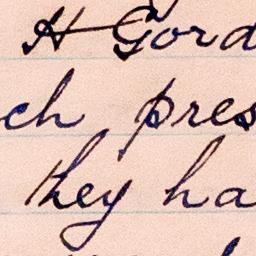 H Gord
ch pres
they ha